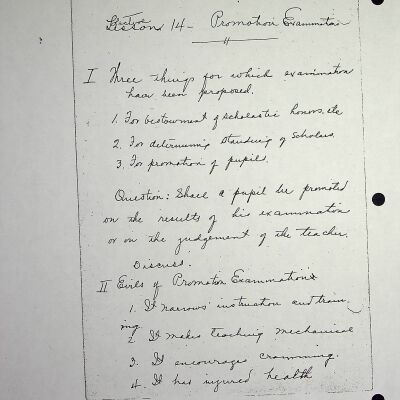 Lecture
Lesson 14 - Promotion Examination
I Three things for which examination
have been proposed.
1. For bestowment of scholastic honors, etc
2. For determining standing of scholars.
3. For promotion of pupils.
Question: Shall a pupil be promoted
on the results of his examination
or on the judgement of the teacher.
Discuss.
II Evils of Promotion Examinations
1. It narrows instruction and train
ing
2. It makes teaching mechanical
3. It encourages cramming.
4. It has injured health